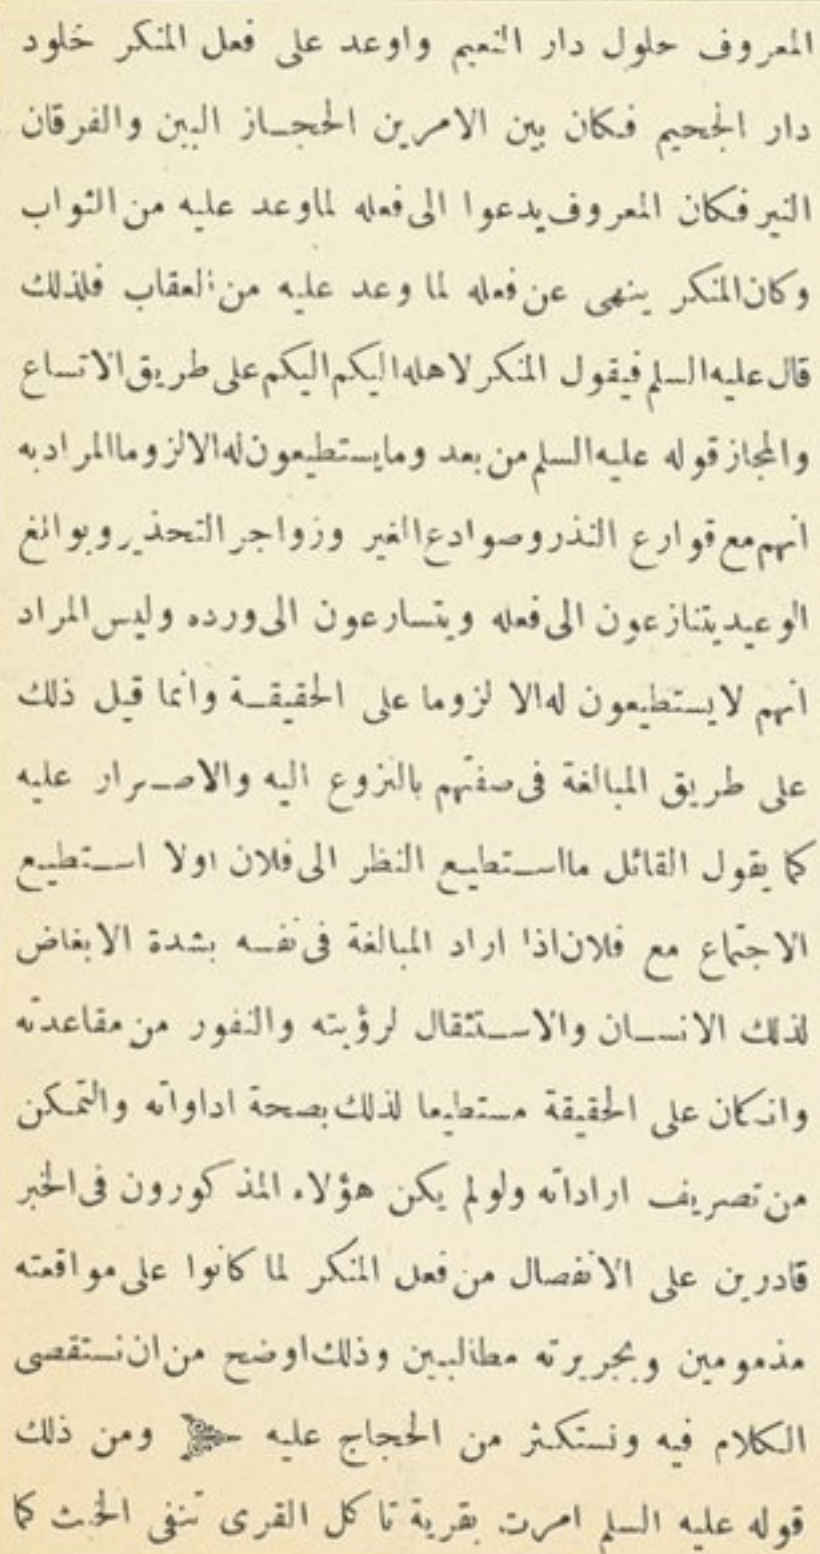 المعروف حلول دار النعيم واوعد على فعل المنكر خلود
دار الجحيم فكان بين الامرين الحجـاز البين والفرقان
النير فكان المعروف يدعوا الى فعله لما وعد عليه من الثواب
وكان المنكر ينهى عن فعله لما وعد عليه من العقاب فلذلك
قال عليه السلم فيقول المنكر لاهله اليكم اليكم على طريق الاتساع
والمجاز قوله عليه السلم من بعد وما يستطيعون له الا لزوما المراد به
انهم مع قوارع النذر وصوادع الغير وزواجر التحذير وبوالغ
الوعيد يتنازعون الى فعله ويتسارعون الى ورده وليس المراد
انهم لا يستطيعون له الا لزوما على الحقيقـة وانما قيل ذلك
على طريق المبالغة فى صفتهم بالنزوع اليه والاصـرار عليه
كما يقول القائل ما اسـتطيـع النظر الى فلان اولا اسـتطيـع
الاجتماع مع فلان اذا اراد المبالغة فى نفسه بشدة الابغاض
لذلك الانسـان والاسـتثقال لرؤيته والنفور من مقاعدته
وان كان على الحقيقة مستطيعا لذلك بصحة اداواته والتمكن
من تصريف اراداته ولو لم يكن هؤلاء المذكورون فى الخبر
قادرين على الانفصال من فعل المنكر لما كانوا على مواقعته
مذمومين وبجريرته مطالبين وذلك اوضح من ان نستقصى
الكلام فيه ونستكثر من الحجاج عليه ومن ذلك
قوله عليه السلم امرت بقرية تاكل القرى تنفى الخبث كما